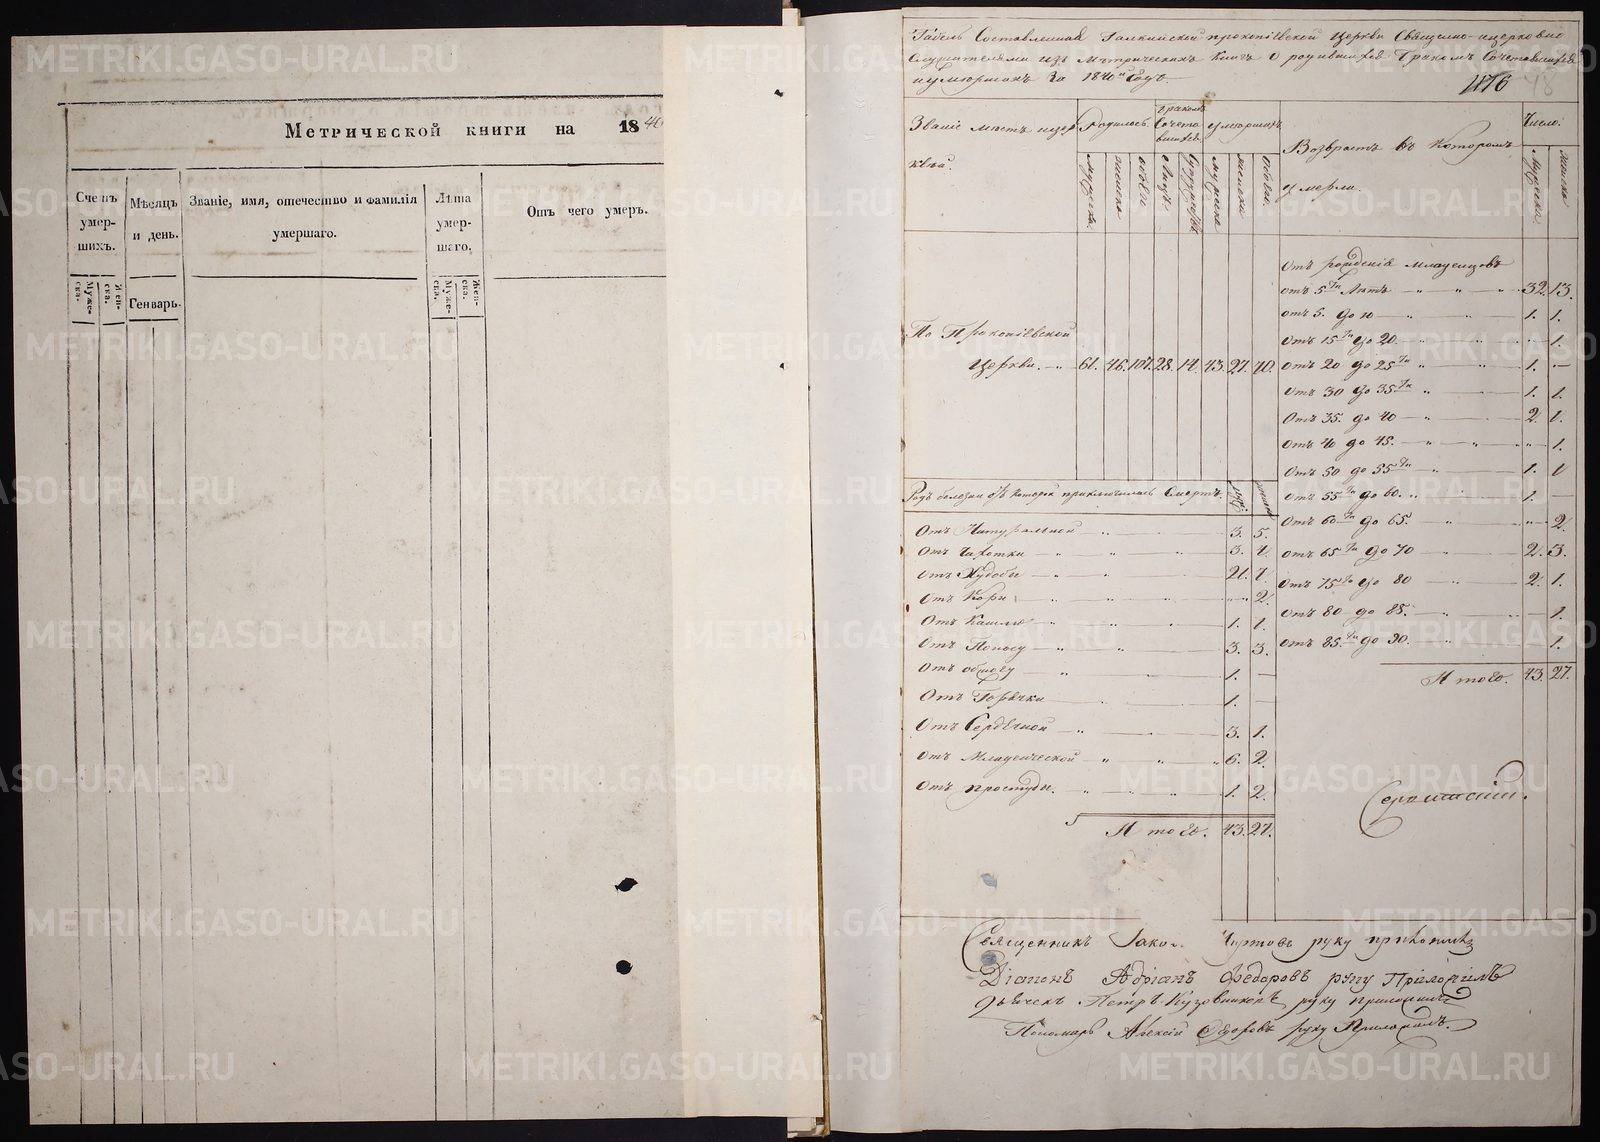 Метрической книги на 1840
Счетъ умер-шихъ.
Мѣсяцъ и день.
Званіе, имя, отечество и фамилія умершаго.
Лѣта умер-шаго.
Отъ чего умеръ.
Муже-ска.
Жен-ска.
Генварь.
Муже-ска.
Жен-ска.
Табель Составленная Галкинской прокопіевской Церкви Священно-церковно
служителями изъ мѣтрическихъ Книгъ О родившихся Бракомъ Сочетавшихся
и умершихъ За 1840й Годъ
1176
48
Званіе мѣстъ церквей.
Родилось.
бракомъ Сочетавшихся
умершихъ
Возврастъ въ Которомъ умерли.
Число.
мужеска.
женска
обоего
мужеска
женска
Обоего.
Мужеска.
женска
По Прокопіевской
Церкви. 61. 46. 107. 28. 14. 43. 27. 70.
Отъ рожденія младенцовъ
отъ 5ти Лѣтъ 32. 13.
отъ 5. до 10 1. 1.
Отъ 15ти до 20. 1.
Отъ 20 до 25ти 1. —
Отъ 30 до 35ти 1. 1.
Отъ 35. до 40 2. 1.
Отъ 40 до 45. 1.
Отъ 50 до 55ти 1. 1
Отъ 55ти до 60. 1. —
Отъ 60ти до 65. 2.
отъ 65ти до 70 2. 3.
отъ 75ти до 80 2. 1.
отъ 80 до 85. — 1.
отъ 85.ти до 90. 1.
Итого. 43. 27.
Родъ болезни отъ Которой приключилась Смерть.
муж.
женска
Отъ Натуральной 3. 5.
Отъ Чахотки 3. 4.
Отъ Худобы 21. 7.
Отъ Кори 2.
Отъ Кашлю 1. 1.
Отъ Поносу 3. 3.
Отъ 1. —
Отъ Горячки 1. —
Отъ Сердечной 3. 1.
Отъ Младенческой 6. 2.
Отъ простуды. 1. 2.
Итого. 43. 27.
Священникъ Іако Чиртовъ руку приложилъ
Діаконъ Адріанъ Федоровъ руку Приложилъ
Дьячекъ Петръ Кузовниковъ руку приложилъ
Пономарь Алексій руку Приложилъ.
METRIKI.GASO-URAL.RU